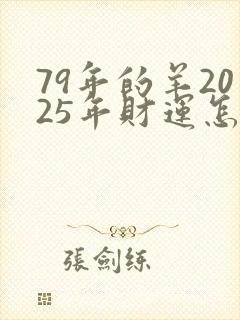 79年的羊20
25年財運怎
張劍練